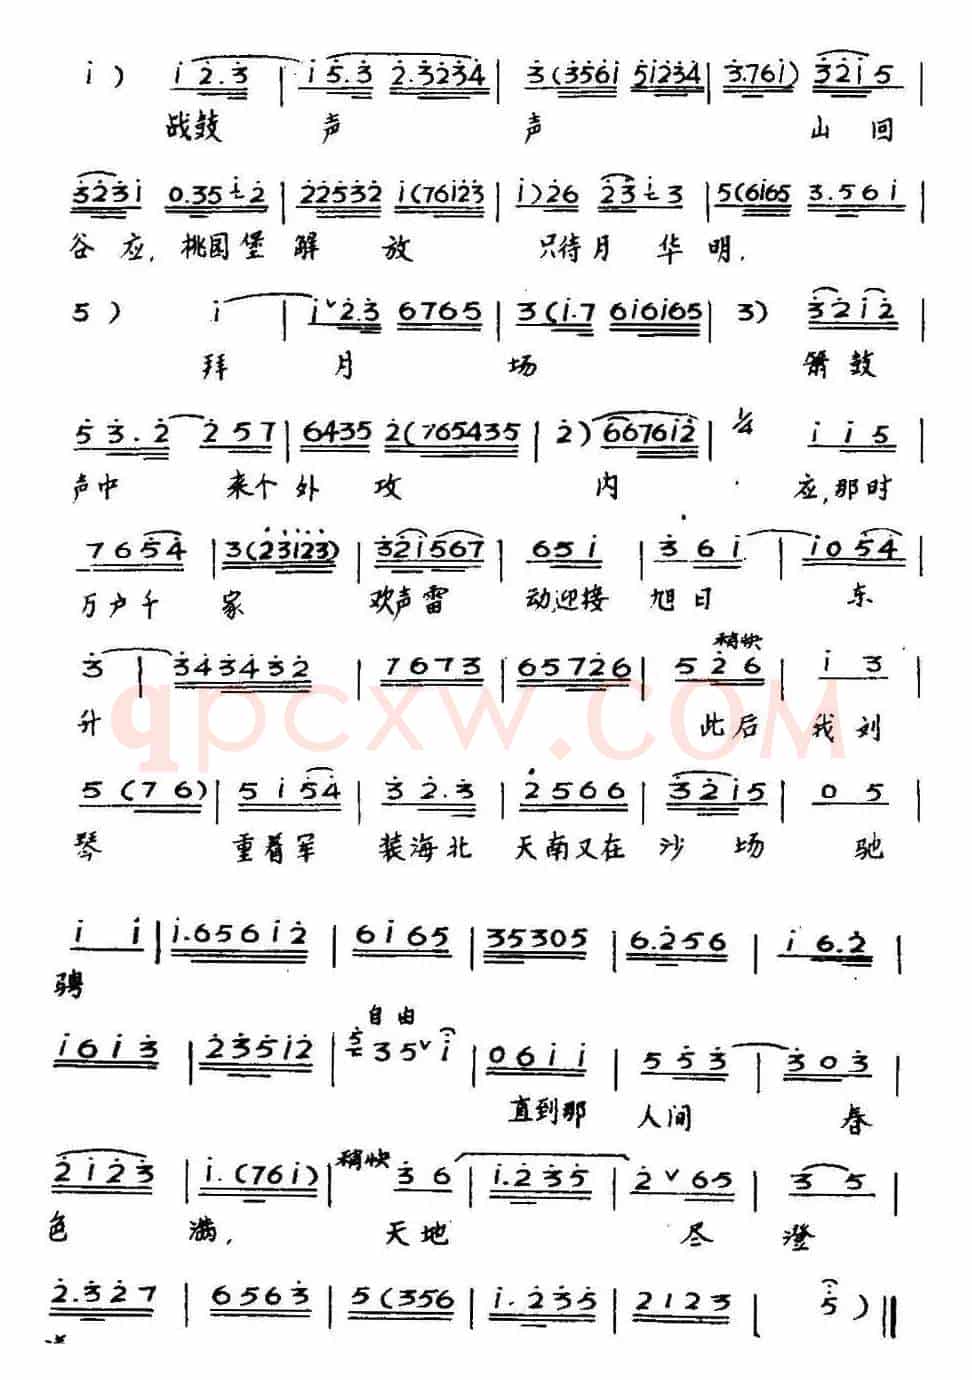 i ) i 2.3 | i 5.3 2.3234 | 3 (3561 51234 | 3.761) 3215 |
战鼓 声 声 山回
3231 0.35 i 2 | 22532 i (76123 | i) 26 23 i 3 | 5(6165 3.561 |
谷应, 桃园堡解放 只待月华明.
5 ) i | i ˅ 2.3 6765 | 3 (i.7 616165 | 3) 3212 |
拜月场 箫鼓
5 3.2 2 5 7 | 6435 2(765435 | 2) 667612 | 1/4 i i 5
声中 来个外攻 内 应,那时
7 6 5 4 | 3(23123) | 321567 | 6 5 i | 3 6 i | i 0 5 4 |
万户千 家 欢声雷 动,迎接 旭日 东
3 | 343432 | 7673 | 65726 | 稍快 5 2 6 | i 3 |
升 此后 我刘
qpcxw.COM
5 (7 6) | 5 i 5 4 | 3 2.3 | 2566 | 3215 | 0 5 |
琴 重着军 装海北 天南又在 沙场 驰
i i | i.65612 | 6 i 6 5 | 35305 | 6.256 | i 6.2 |
骋
自由
i 6 i 3 | 23512 | 5 3 5 ˅ i | 0 6 i i | 5 5 3 | 3 0 3 |
直到那 人间 春
2 i 2 3 | i.(76 i) | 稍快 3 6 | i.235 | 2 ˅ 6 5 | 3 5 |
色 满, 天地 尽澄
2.327 | 6563 | 5(356 | i.235 | 2123 | 5 ) ‖